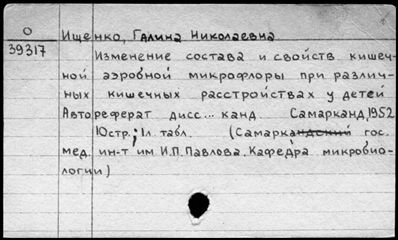 О
39317
Ищенко, Галина Николаевна
Изменение состава и свойств кишеч-
ной аэробной микрофлоры при различ-
ных кишечных расстройствах у детей
Автореферат дисс... канд Самарканд, 1952
10стр.; 1л. табл. (Самаркандский гос.
мед. ин-т им. И.П. Павлова. Кафедра микробио-
логии)